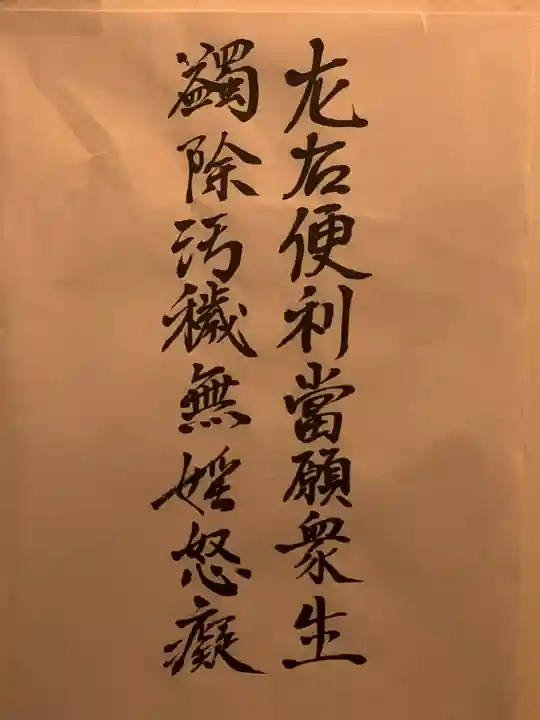 左右便利當願衆生
蠲除汚穢無婬怒癡